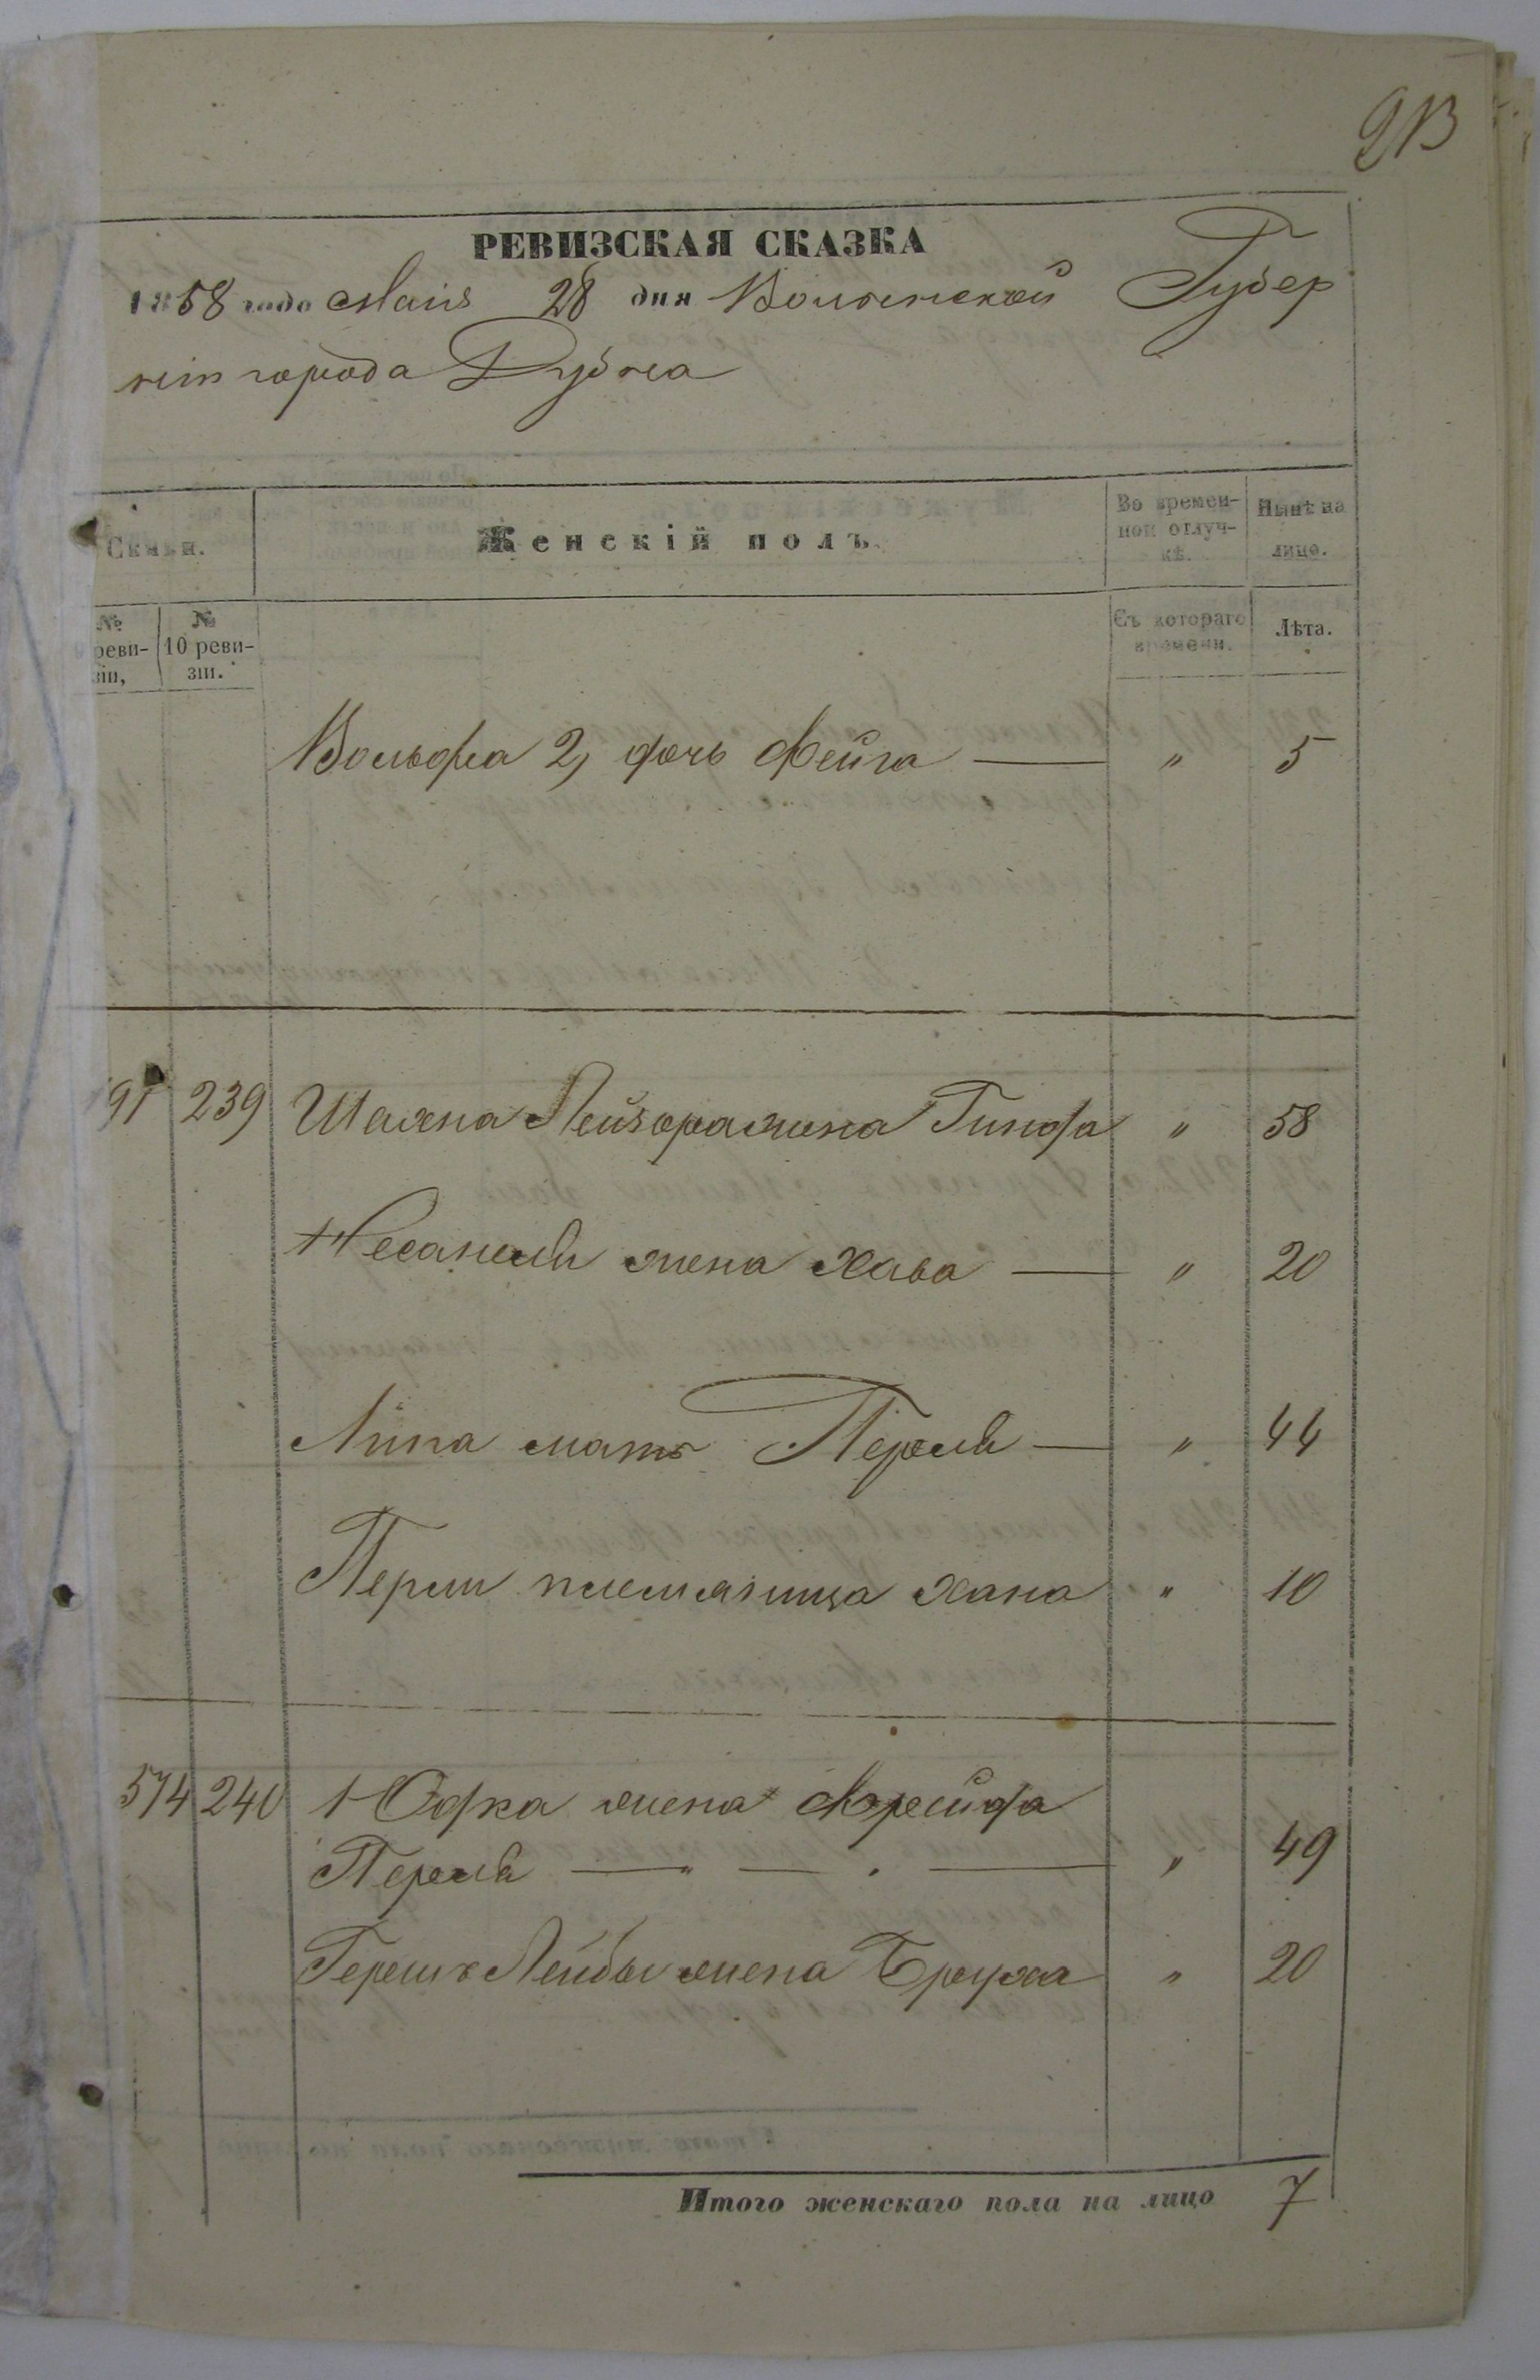 213
РЕВИЗСКАЯ СКАЗКА
1858 года Маія 28 дня Волынской Губер
ніи города Дубна
Семьи.
Женскій полъ.
Во времен-
ной отлуч-
кѣ.
Нынѣ на
лицо.
№
9 реви-
зіи,
№
10 реви-
зіи.
Съ котораго
времени.
Лѣта.
Вольфа 2, дочь Фейга — " 5
91 239 Шахна Лейзора жена Гинда " 58
жена Хава — " 20
мать Перля — " 44
племяница Хана " 10
574 240 Юдка жена Фрейда
Перля — " — . — " 49
Гершъ Лейбы жена Бруха " 20
Итого женскаго пола на лицо 7